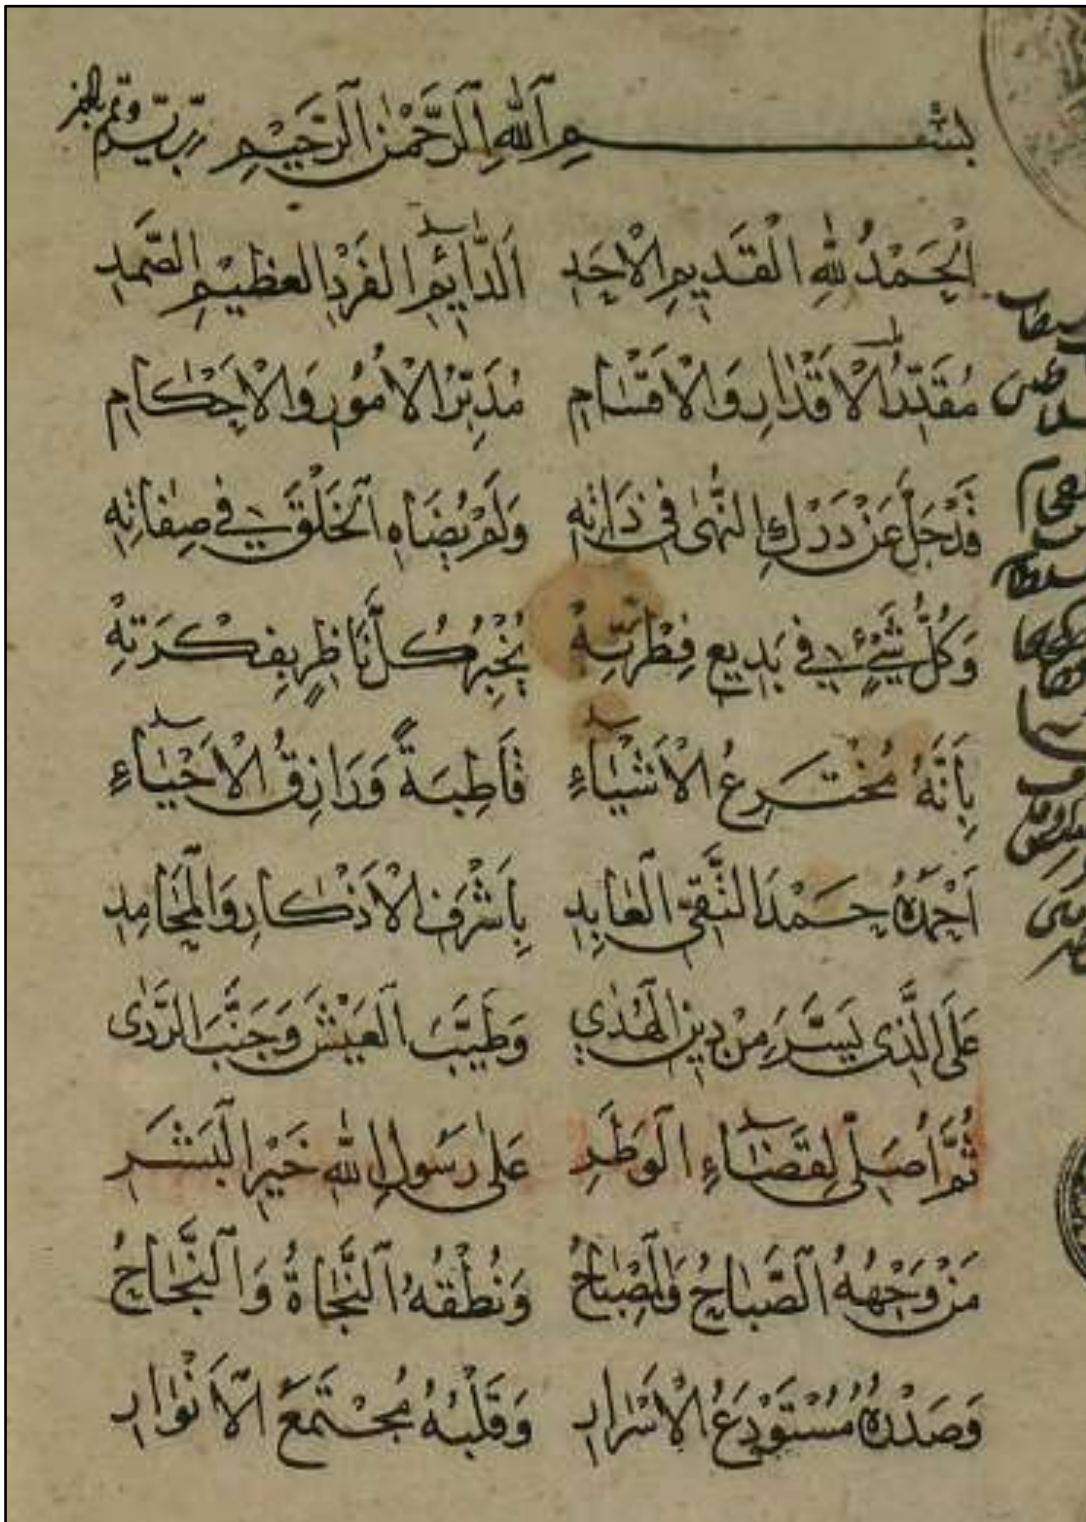 بِسْمِ ٱللّٰهِ ٱلرَّحْمٰنِ ٱلرَّحِيْمِ رَبِّ يَسِّرْ وَتَمِّمْ بِالْخَيْرِ
اَلْحَمْدُ لِلّٰهِ الْقَدِيمِ الْاَحَدِ اَلدَّائِمِ الفَرْدِ العَظِيْمِ الصَّمَدِ
مُقَدِّرُ الْاَقْدَارِ وَالْاَقْسَامِ مُدَبِّرُ الْاُمُوْرِ وَالْاَحْكَامِ
قَدْ جَلَّ عَنْ دَرْكِ النُّهٰى فِى ذَاتِهِ وَلَمْ يُضَاهِ ٱلْخَلْقَ فِي صِفَاتِهِ
وَكُلُّ شَيْءٍ فِي بَدِيعِ فِطْرَتِهْ يُخْبِرُ كُلَّ نَاظِرٍ بِفِكْرَتِهْ
بِاَنَّهُ مُخْتَرِعُ الْاَشْيَاءِ قَاطِبَةً وَرَازِقُ الْاَحْيَاءِ
اَحْمَدُهُ حَمْدَ التَّقِيِّ ٱلْعَابِدِ بِاَشْرَفِ الْاَذْكَارِ وَالْمَحَامِدِ
عَلَى الَّذِى يَسَّرَ مِنْ دِينِ الْهُدٰي وَطَيَّبَ ٱلْعَيْشَ وَجَنَّبَ الرَّدٰى
ثُمَّ اُصَلِّى لِقَضَاءِ ٱلْوَطَرِ عَلٰى رَسُولِ اللّٰهِ خَيْرِ ٱلْبَشَرِ
مَنْ وَجْهُهُ ٱلصَّبَاحُ وَٱلْمِصْبَاحُ وَنُطْقُهُ ٱلنَّجَاةُ وَٱلنَّجَاحُ
وَصَدْرُهُ مُسْتَوْدَعُ الْاَسْرَارِ وَقَلْبُهُ مُجْتَمَعُ الْاَنْوَارِ